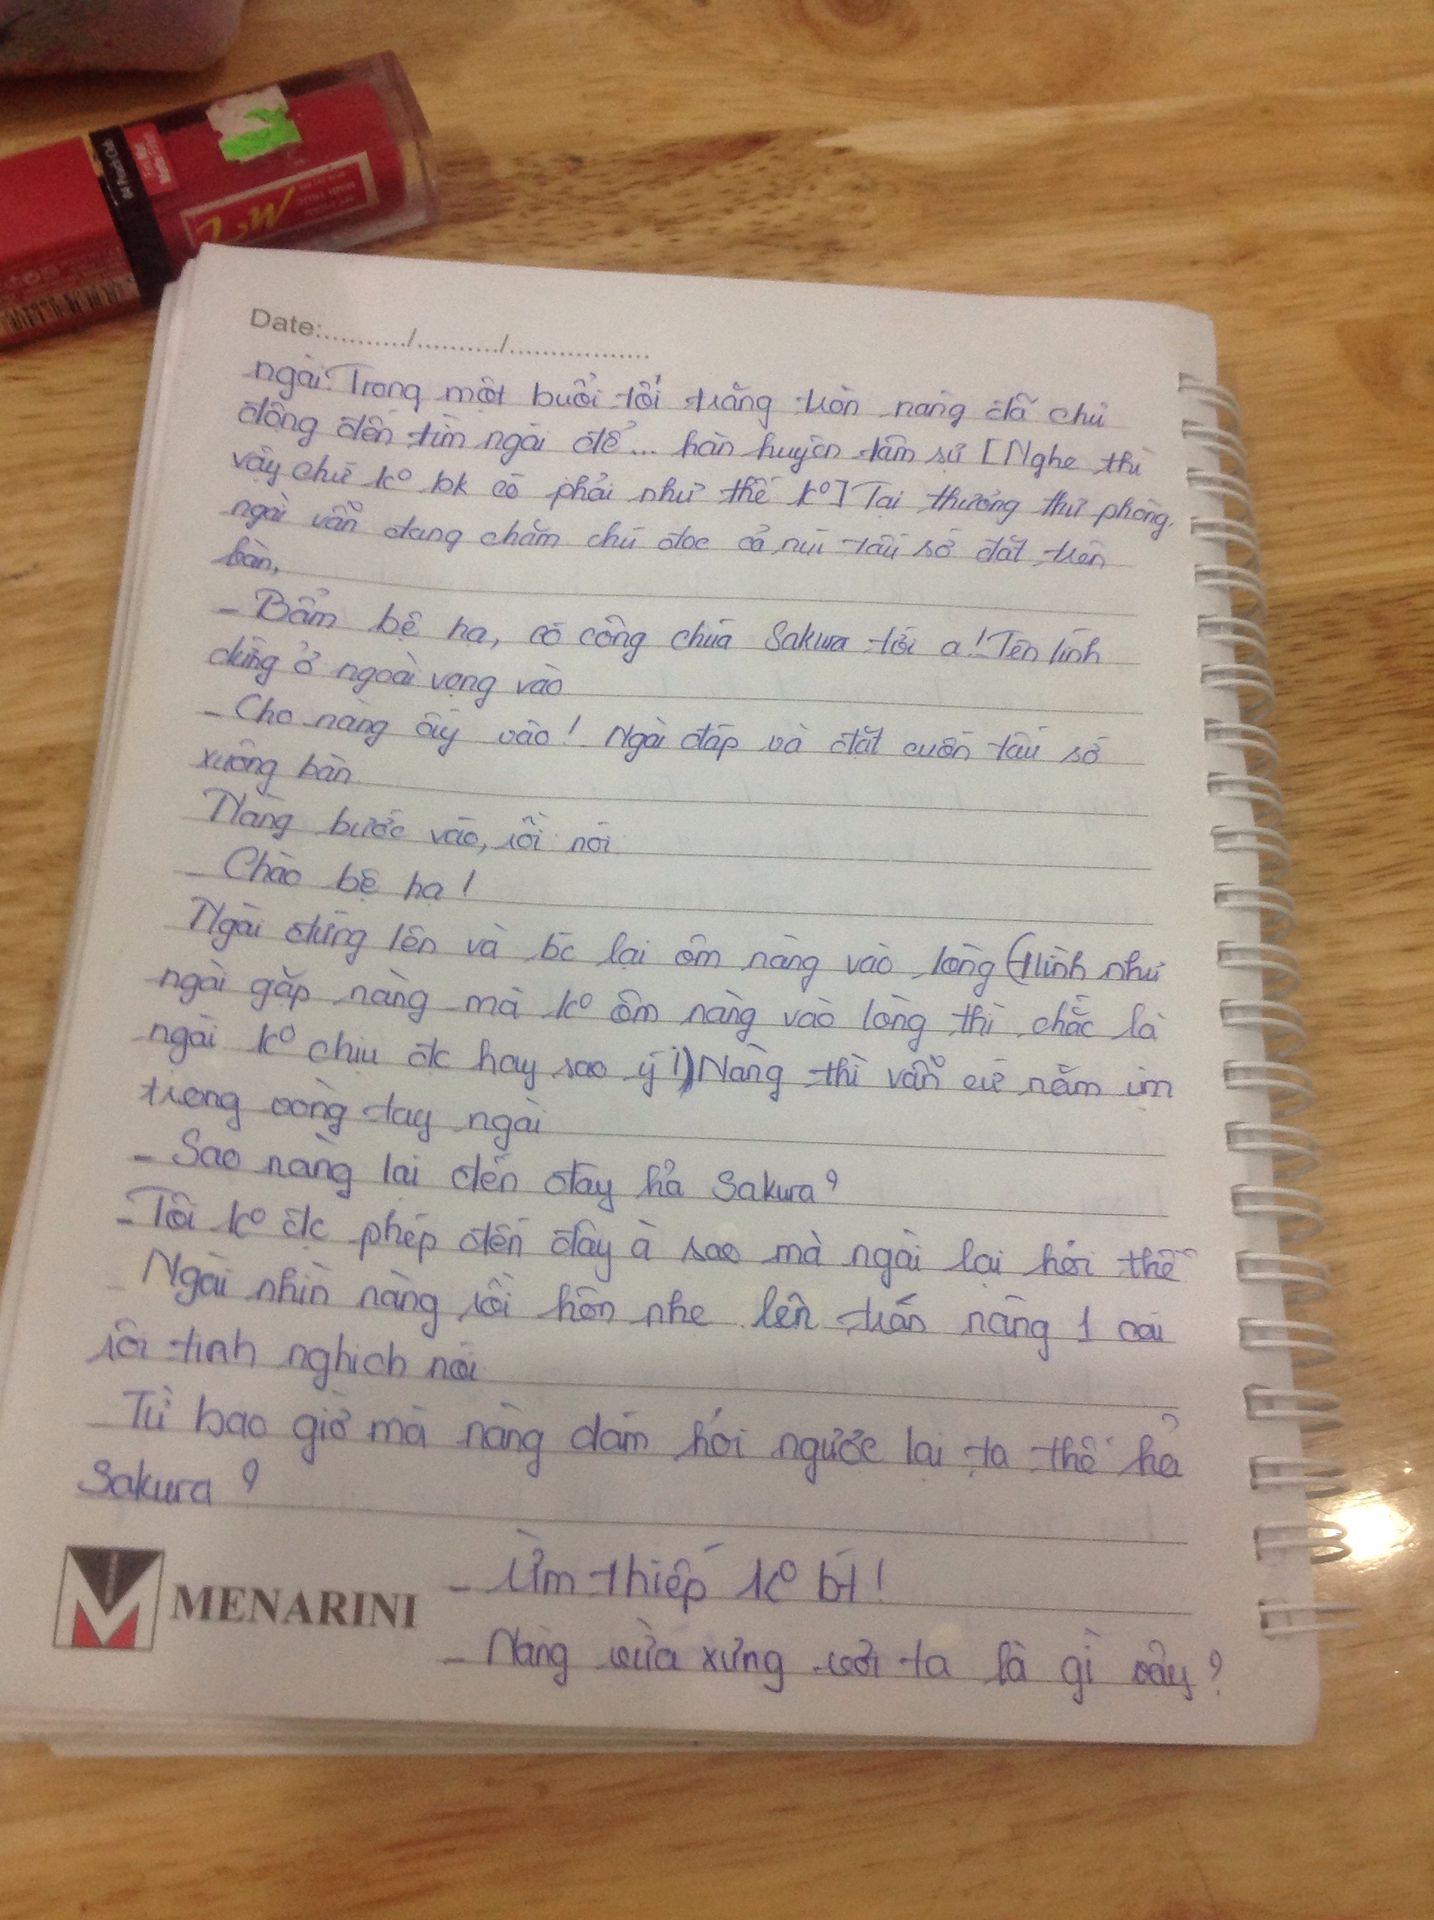 MC
Date:........../........../.................
ngài. Trong một buổi tối trăng tròn nàng đã chủ
động đến tìm ngài để... hàn huyên tâm sự [Nghe thì
vậy chứ k° bk có phải như thế k°] Tại thượng thư phòng,
ngài vẫn đang chăm chú đọc cả núi tấu sớ đặt trên
bàn,
- Bẩm bệ hạ, có công chúa Sakura tới ạ! Tên lính
đứng ở ngoài vọng vào
- Cho nàng ấy vào! Ngài đáp và đặt cuốn tấu sớ
xuống bàn
Nàng bước vào, rồi nói
- Chào bệ hạ!
Ngài đứng lên và bc lại ôm nàng vào lòng (Hình như
ngài gặp nàng mà k° ôm nàng vào lòng thì chắc là
ngài k° chịu đc hay sao ý!) Nàng thì vẫn cứ nằm im
trong vòng tay ngài
- Sao nàng lại đến đây hả Sakura?
- Tôi k° đc phép đến đây à sao mà ngài lại hỏi thế
Ngài nhìn nàng rồi hôn nhẹ lên trán nàng 1 cái
rồi tinh nghịch nói
- Từ bao giờ mà nàng dám hỏi ngược lại ta thế hả
Sakura?
MENARINI
- Ừm thiếp k° bt!
- Nàng vừa xưng với ta là gì vậy?